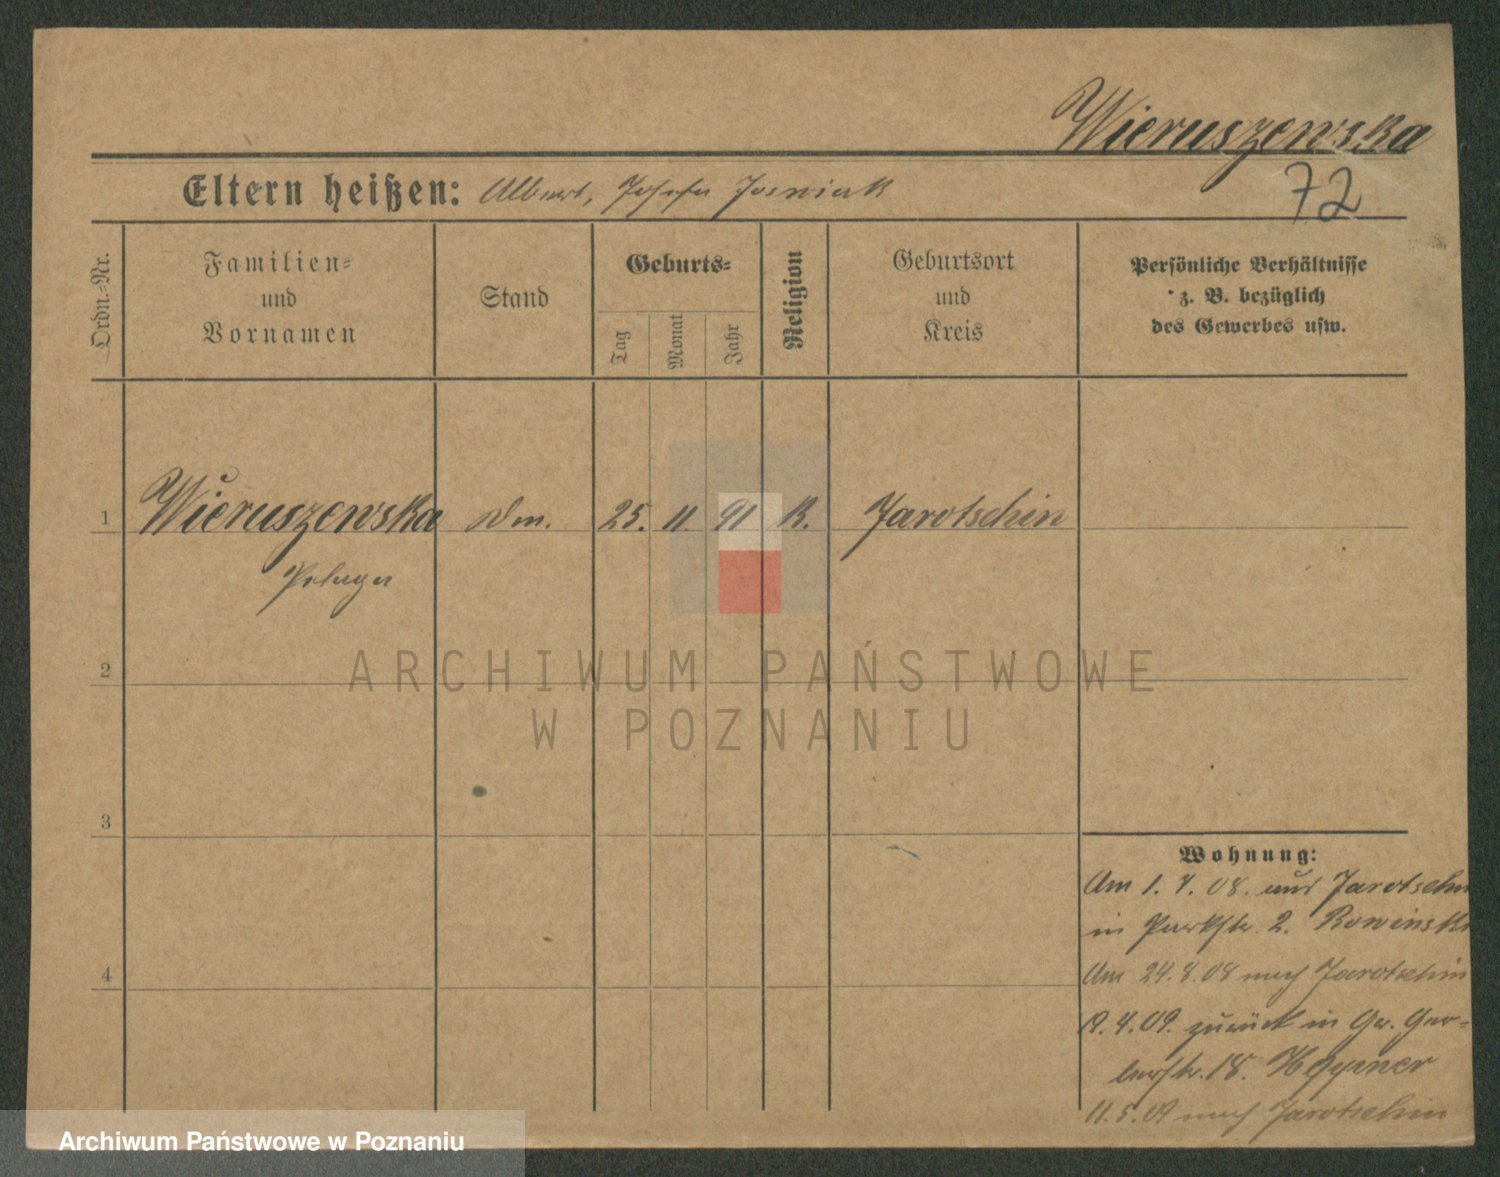 Wieruszewska
72
Eltern heißen: Albert, Josefa Joswiak
Ordn.-Nr.
Familien-
und
Vornamen
Stand
Geburts-
Tag
Monat
Jahr
Religion
Geburtsort
und
Kreis
Persönliche Verhältnisse
z. B. bezüglich
des Gewerbes usw.
1 Wieruszewska Dm. 25. 11. 91 K. Jarotschin
Pelagia
ARCHIWUM PAŃSTWOWE
W POZNANIU
2
3
4
Wohnung:
Am 1. 7. 08. aus Jarotschin
in Parkstr. 2. Rowinski
Am 24.8.08 nach Jarotschin
19.4.09. zurück in Gr. Ger-
berstr. 18.
11.5.09 nach Jarotschin
Archiwum Państwowe w Poznaniu